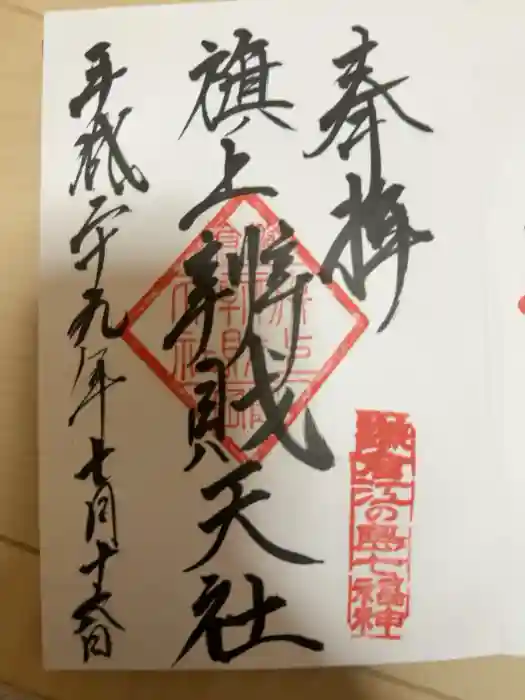 奉拝
鎌倉江の島七福神
旗上辨財天社
平成二十九年七月十六日